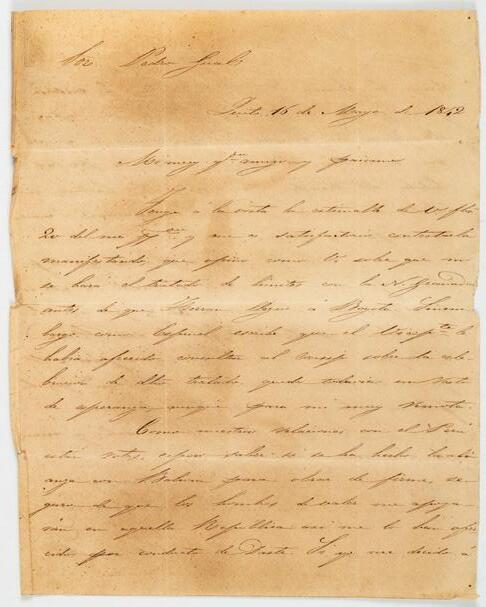 Sor Pedro Gual
Quito 16 de Marzo de 1842
Mi muy qdo amigo y paisano
Tengo á la vista la estimable de U. fha
20 del mes ppdo y me es satisfactorio contestarla
manifestando, que opino como U. sobre que no
se hará el tratado de límites con la N. Granada
antes de que Herran llegue á Bogotá. Sinem
bargo como Espinel escribe que el Vicepte le
había ofrecido consultar al Consejo sobre la cele
bracion de dho tratado, queda todavia un resto
de esperanza, aunque para mi muy remota.
Como nuestras relaciones con el Perú
están rotas, espero saber si se ha hecho la ali
anza con Bolivia para obrar de firme, se
guro de que los hombres de valer me apoya
rán en aquella Republica asi me lo han ofre
cido por conducto de Daste. Si yo me decido á